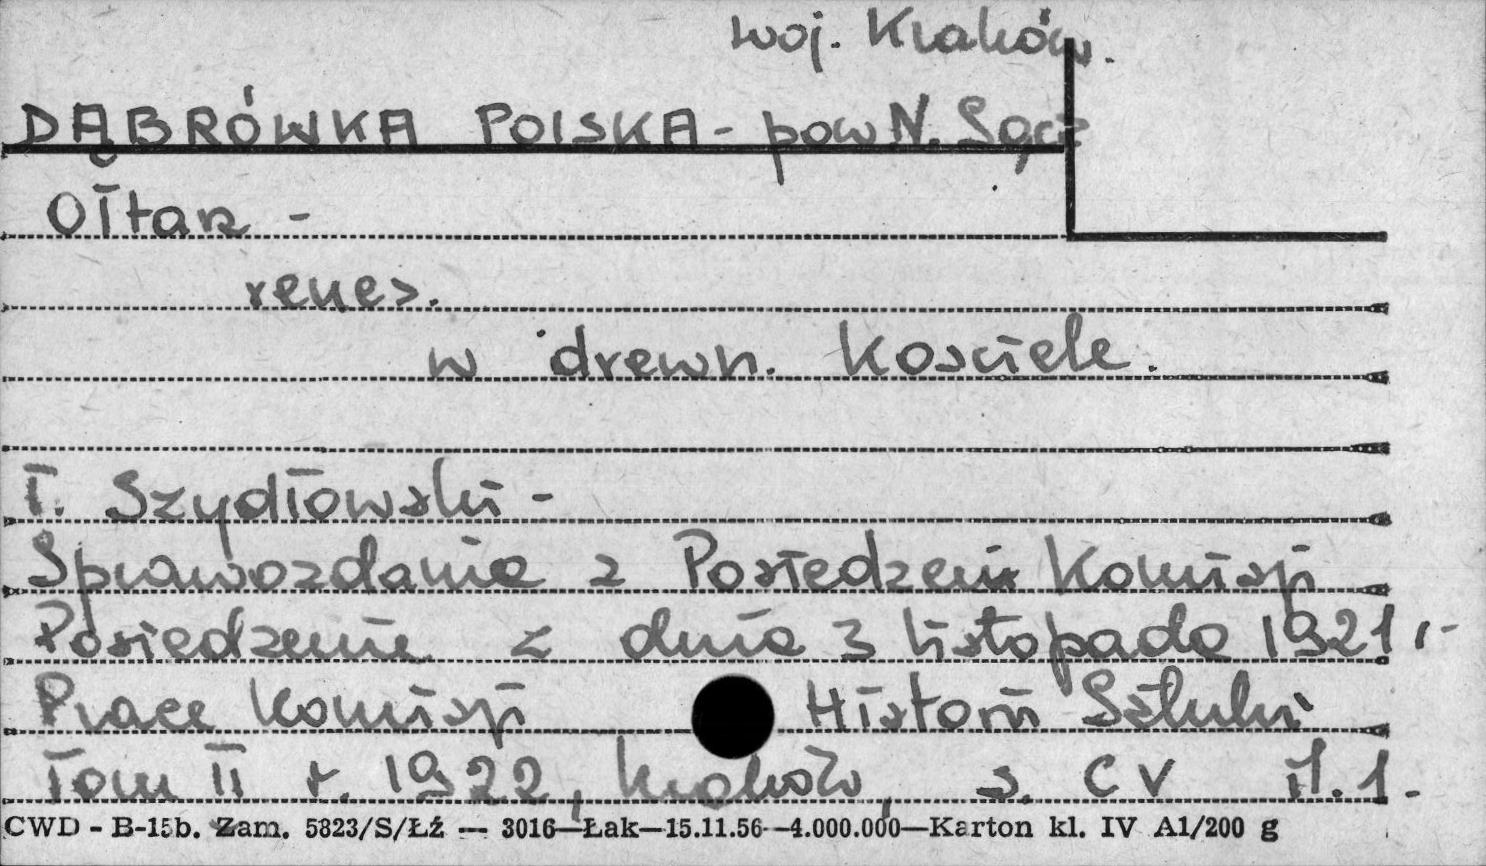 woj. Kraków.
DĄBRÓWKA POLSKA - pow N. Sącz
Ołtarz -
renes.
w drewn. Kościele.
T. Szydłowski -
Sprawozdanie z Posiedzeń Komisji
Posiedzenie z dnia 3 listopada 1921,-
Prace Komisji Historii Sztuki
Tom II r. 1922, Kraków, s. CV il. 1.
CWD - B-15b. Zam. 5823/S/Łź — 3016—Łak—15.11.56—4.000.000—Karton kl. IV A1/200 g